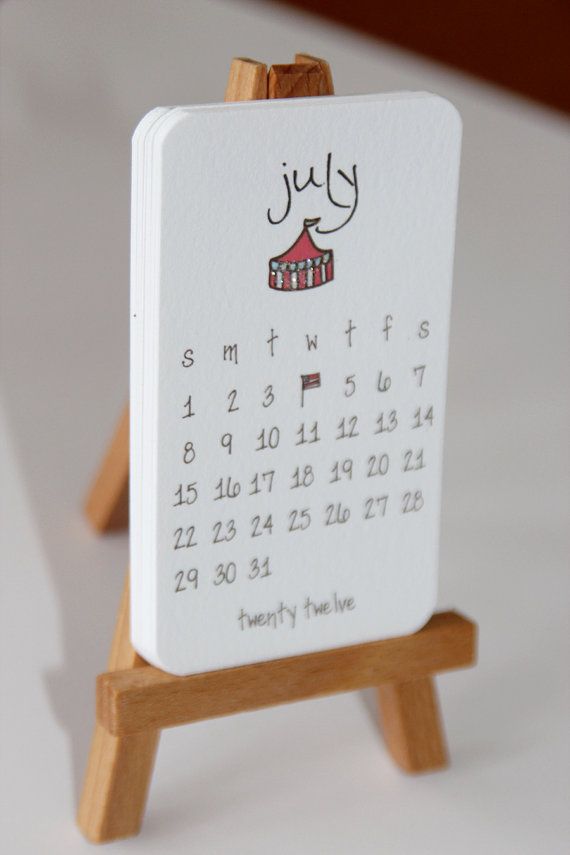 july
s m t w t f s
1 2 3 5 6 7
8 9 10 11 12 13 14
15 16 17 18 19 20 21
22 23 24 25 26 27 28
29 30 31
twenty twelve